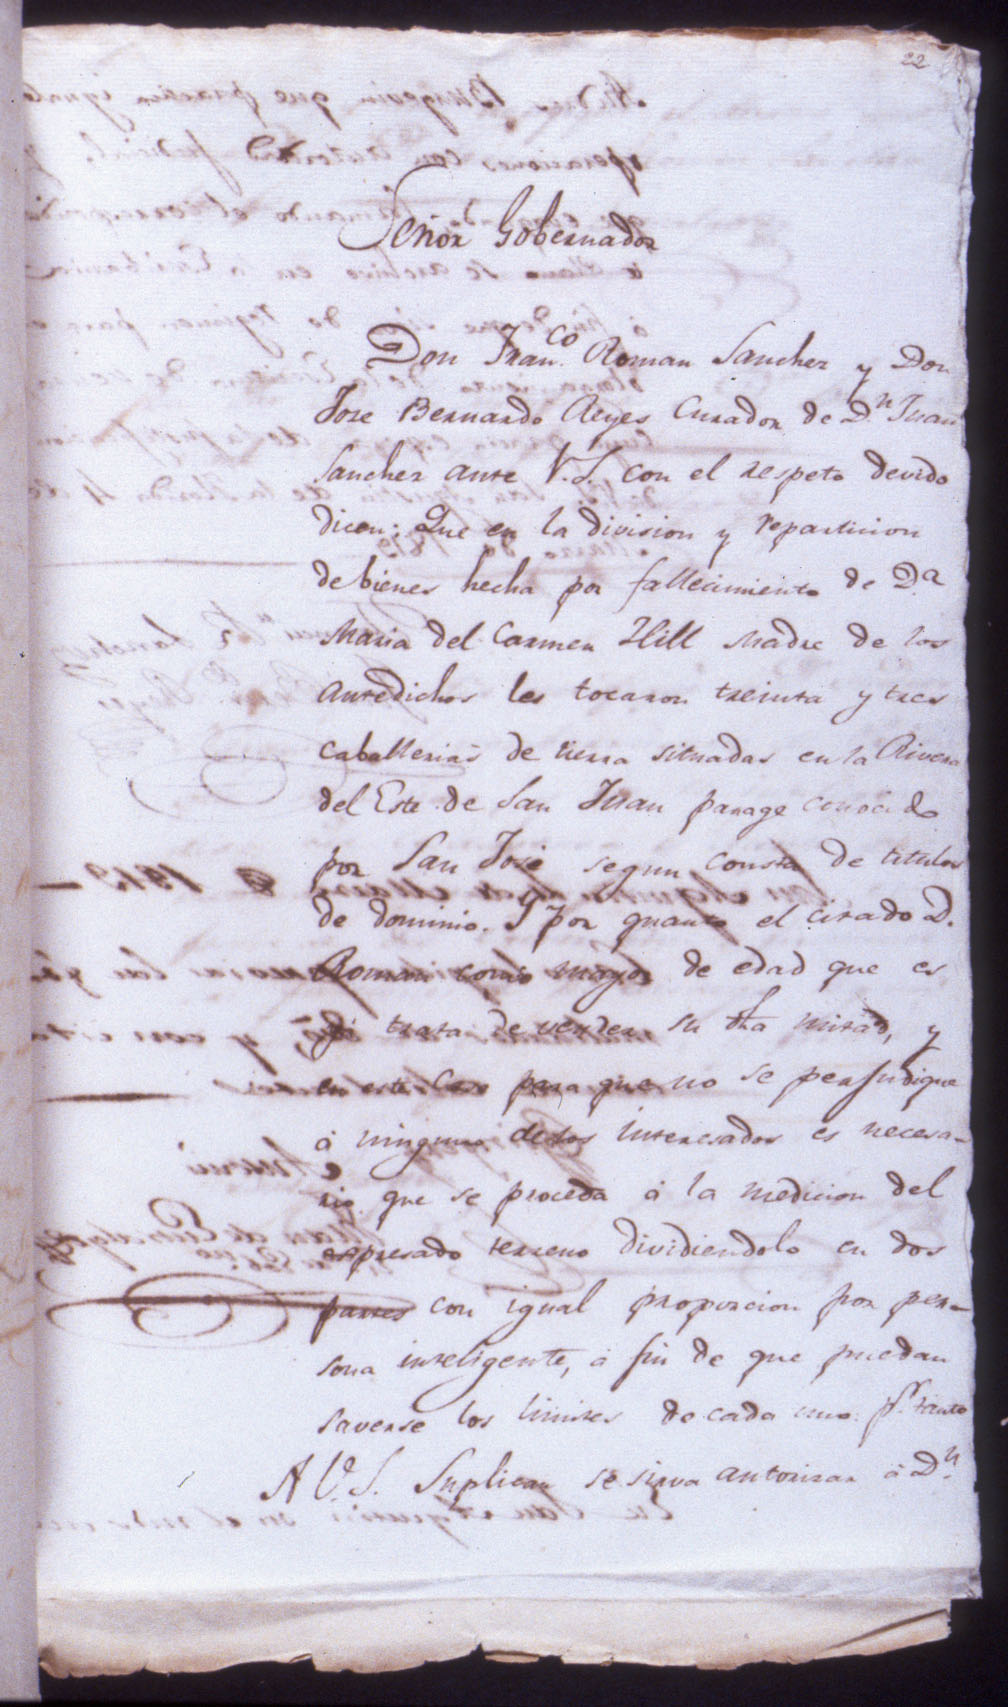 22
Señor Gobernador
Don Fran.co Roman Sanchez y Don
Jose Bernardo Reyes Curador de D.n Juan
Sanchez ante V.S. con el respeto devido
dicen: Que en la division y reparticion
de bienes hecha por fallecimiento de D.a
Maria del Carmen Hill Madre de los
antedichos les tocaron treinta y tres
caballerias de tierra situadas en la Rivera
del Este de San Juan parage conocido
por San José segun consta de titulos
de dominio. Y por quanto el citado D.
Roman como mayor de edad que es
yá trata de vender su dha mitad, y
en este caso para que no se perjudique
á ninguno de los interesados es necesa-
rio que se proceda á la medicion del
espresado terreno dividiendolo en dos
partes con igual proporcion por per-
sona inteligente, á fin de que puedan
saverse los limites de cada uno: p.r tanto
A V.S. Suplican se sirva autorizar á D.n